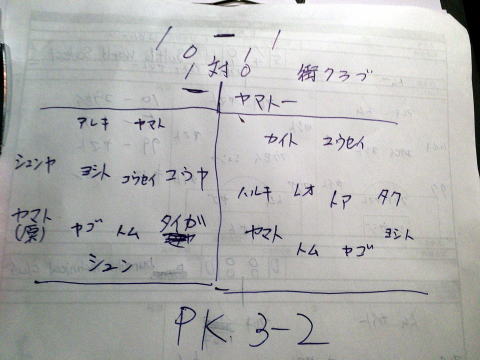 1 - 1
0 1
1 対 0 街クラブ
ヤマトー
アレキ ヤマト
カイト ユウセイ
シュンヤ ヨシト コウセイ ユウヤ
ハルキ レオ トア タク
ヤマト(原) ヤゴ トム タイガ
ヤマト トム ヤゴ ヨシト
シュン
PK. 3-2